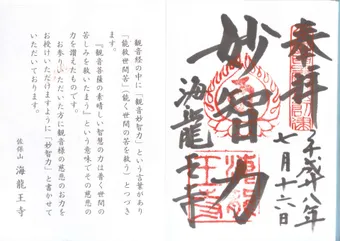 奉拝
妙智力
海龍王寺
平成十八年
七月十六日
観音経の中に「観音妙智力」という言葉があり
「能救世間苦」（能く世間の苦を救う）とつづき
ます。
『観音菩薩の素晴しい智慧の力は善く世間の
苦しみを救いたまう』という意味でその慈悲の
力を讃えたものです。
お参りいただいた方に観音様の慈悲のお力を
お授けいただけますように「妙智力」と書かせて
いただいております。
佐保山 海龍王寺